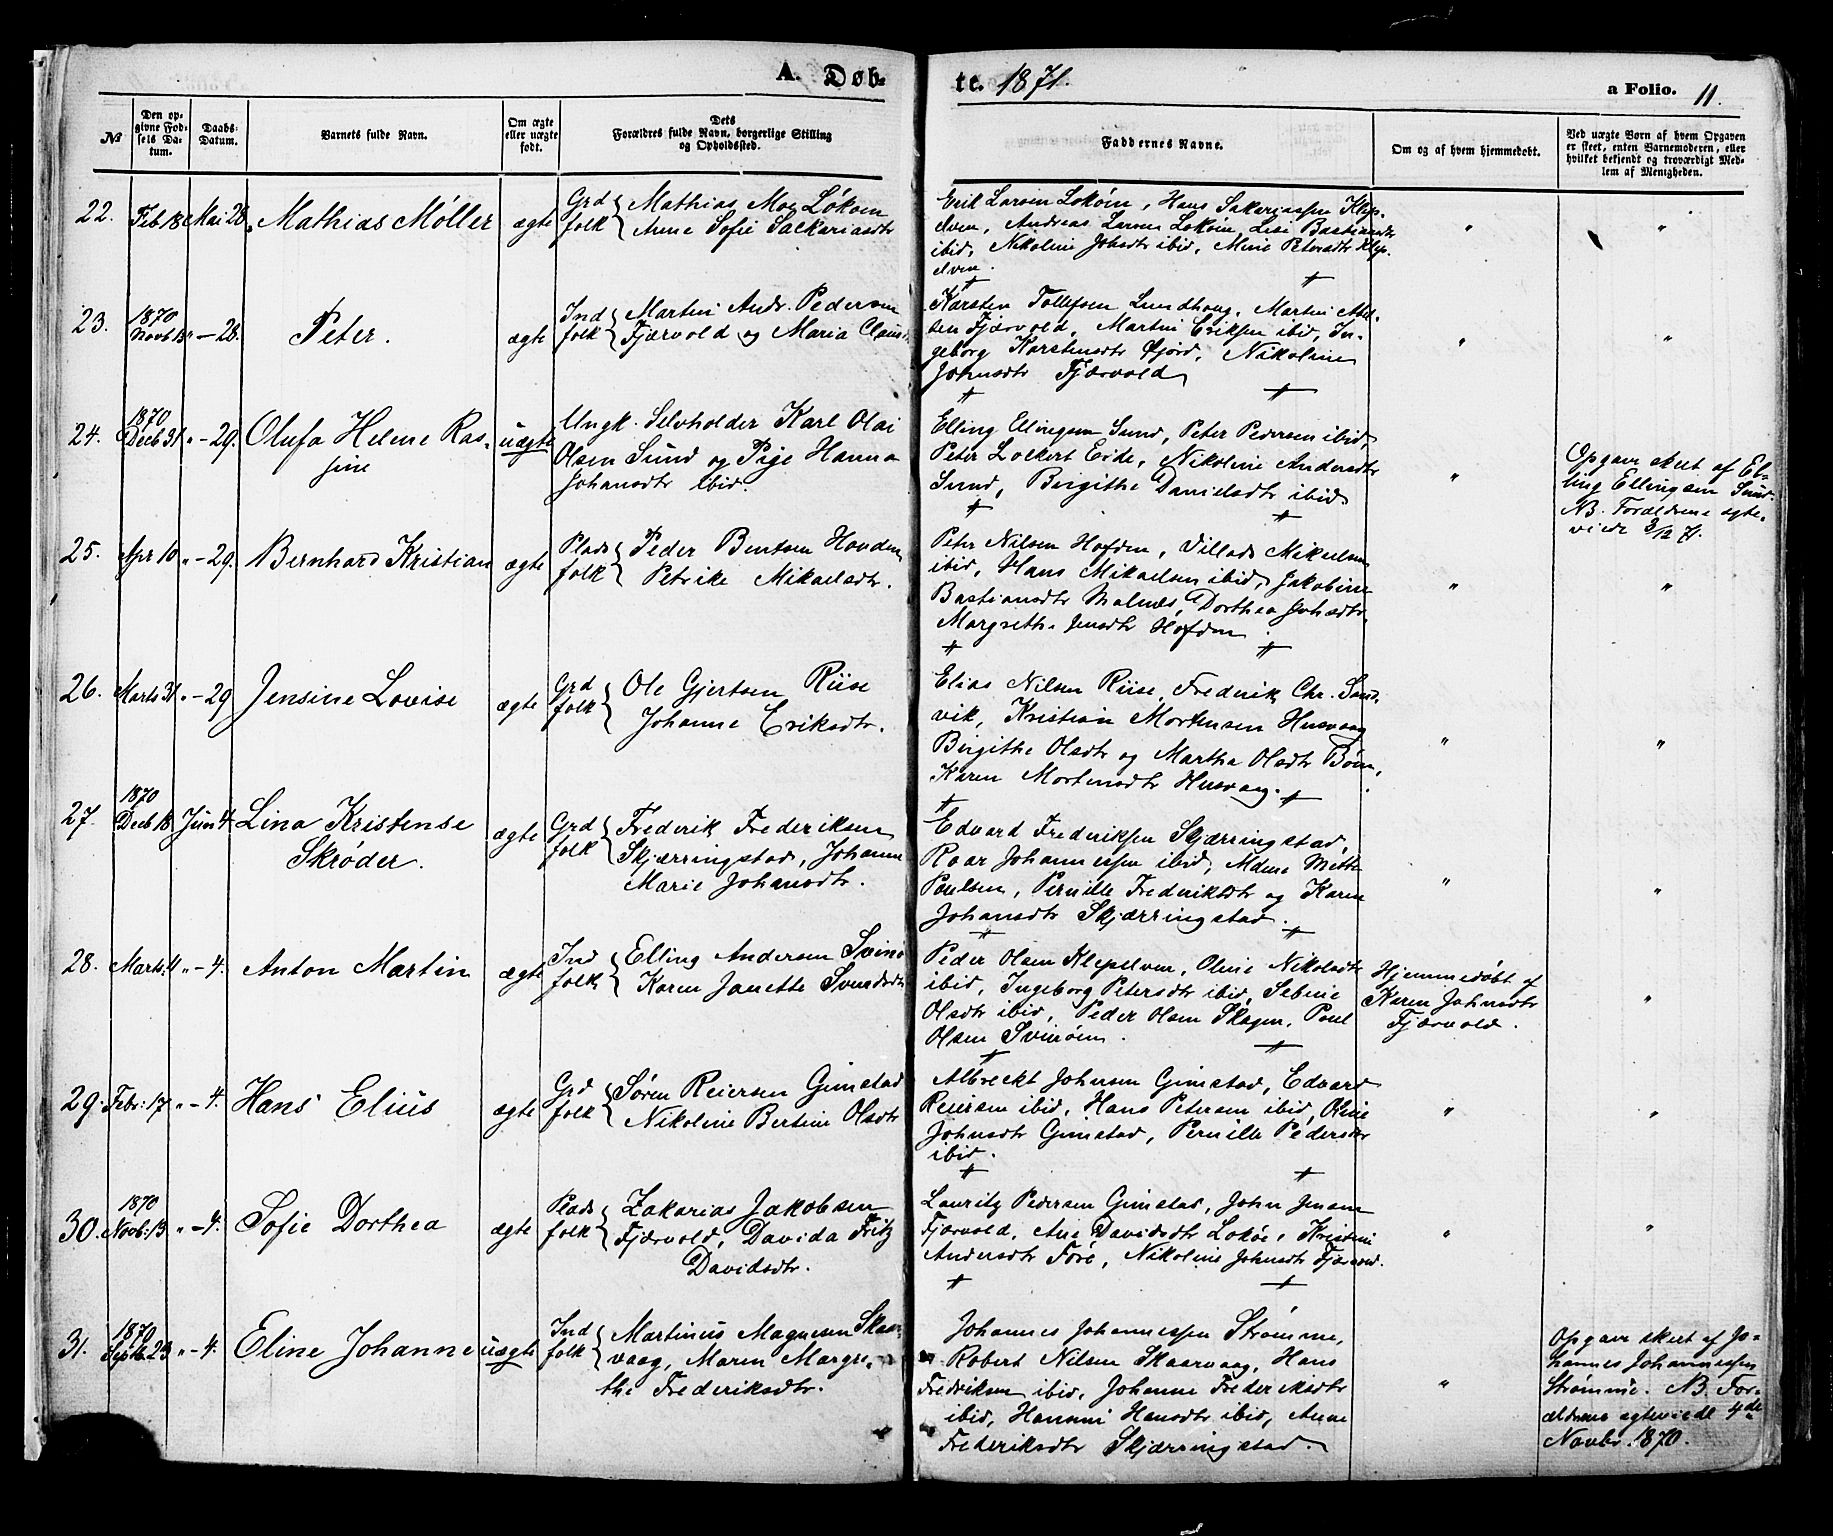 A. Døb-
te. 1871.
a Folio. 11.
No
Den op-
givne Fød-
sels Da-
tum.
Daabs-
Datum.
Barnets fulde Navn.
Om ægte
eller uægte
født.
Dets
Forældres fulde Navn, borgerlige Stilling
og Opholdssted.
Faddernes Navne.
Om og af hvem hjemmedøbt.
Ved uægte Børn af hvem Opgaven
er skeet, enten Barnemoderen, eller
hvilket bekjendt og troværdigt Med-
lem af Menigheden.
22. Feb 18 Mai 28. Mathias Møller ægte Grd
folk
Mathias Moe Løkøen
Anne Sofie Sackariasdtr
Erik Larsen Lokøen, Hans Sakariassen Klep-
elven, Andreas Larsen Lokøen, Lise Bastiansdtr
ibid, Nikoline Johsdtr ibid, Mine Petersdtr Klep-
elven.
" "
23. 1870
Novb 13 " - 28. Peter. ægte Ind
folk
Martin Andr. Pedersen
Fjærvold og Maria Clausd
Karsten Tollefsen Lundhoug, Martin Abel-
sen Fjærvold, Martin Eriksen ibid, In-
geborg Karstensdtr Øjord, Nikoline
Johnsdtr Fjærvold
" "
24. 1870
Decb 31 " - 29. Olufa Helene Ras-
sine
uægte
Ungk. Selvholder Karl Olai
Olsen Sund og Pige Hanna
Johansdtr ibid.
Elling Ellingsen Sund, Peter Pedersen ibid,
Peter Lockert Eide, Nikoline Andersdtr
Sund, Birgithe Danielsdtr ibid
"
Opgave skeet af El-
ling Ellingsen Sund.
NB. Forældrene ægte-
viede 3/12 71.
25. Apr 10 " - 29. Bernhard Kristian ægte Plads
folk
Peder Bentsen Hovden
Petrike Mikaelsdtr.
Peter Nilsen Hofden, Villads Mikaelsen
ibid, Hans Mikaelsen ibid, Jakobine
Bastiansdtr Malnes, Dorthea Johsdtr,
Margrethe Jensdtr Hofden
" "
26. Marts 31 " - 29 Jensine Lovise ægte Grd
folk
Ole Gjertsen Riise
Johanne Eriksdtr.
Elias Nilsen Riise, Frederik Chr. Sand-
vik, Kristian Mortensen Husvaag
Birgithe Olsdtr og Martha Olsdtr Bøen,
Karen Mortensdtr Husvaag.
" "
27. 1870
Decb 18 Juni 4. Lina Kristense
Skrøder.
ægte Grd
folk
Frederik Frederiksen
Skjærringstad, Johanne
Marie Johansdtr.
Edvard Frederiksen Skjærringstad,
Roar Johannessen ibid, Mdme Mette
Poulsen, Pernille Frederiksdtr og Karen
Johansdtr Skjærringstad.
" "
28. Marts 4 " - 4. Anton Martin ægte Ind
folk
Elling Andersen Svinø
Karen Janette Svendsdtr
Peder Olsen Klepelven, Oline Nikolsdtr
ibid, Ingeborg Petersdtr ibid, Sebine
Olsdtr ibid, Peder Olsen Skagen, Poul
Olsen Svinøen.
Hjemmedøbt af
Karen Johnsdtr
Fjærvold.
"
29. Febr: 17 " - 4. Hans Elius ægte Grd
folk
Søren Reiersen Gimstad
Nikoline Bertine Olsdtr
Albreckt Johnsen Gimstad, Edvard
Reiersen ibid, Hans Petersen ibid, Oline
Johnsdtr Gimstad, Pernille Pedersdtr
ibid.
" "
30. 1870
Novb: 13 " - 4. Sofie Dorthea ægte Plads
folk
Zakarias Jakobsen
Fjærvold, Davida Fritz
Davidsdtr.
Lauritz Pedersen Gimstad, John Jensen
Fjærvold, Ane Davidsdtr Lokøe, Kristine
Andersdtr Føre, Nikoline Johnsdtr Fjærvold.
" "
31. 1870
Septb 23 " - 4. Eline Johanne uægte Ind
folk
Martinus Magnesen Skaar-
vaag, Maren Margre-
the Frederiksdtr.
Johannes Johannessen Strømme,
Robert Nilsen Skaarvaag, Hans
Fredriksen ibid, Johanne Frederiksdtr
ibid, Hansine Hansdtr ibid, Anne
Frederiksdtr Skjærringstad.
"
Opgave skeet af Jo-
hannes Johannessen
Strømme. NB. For-
ældrene ægteviede 4de
Novbr. 1870.